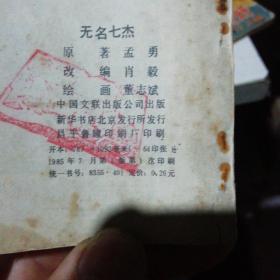 无名七杰
原著 孟勇
改编 肖毅
绘画 董志斌
中国文联出版公司出版
新华书店北京发行所发行
昌平鲁疃印刷厂印刷
开本:787×1092毫米 64印张
1985年7月第 版第 次印刷
统一书号:8355·401 定价:0.26元